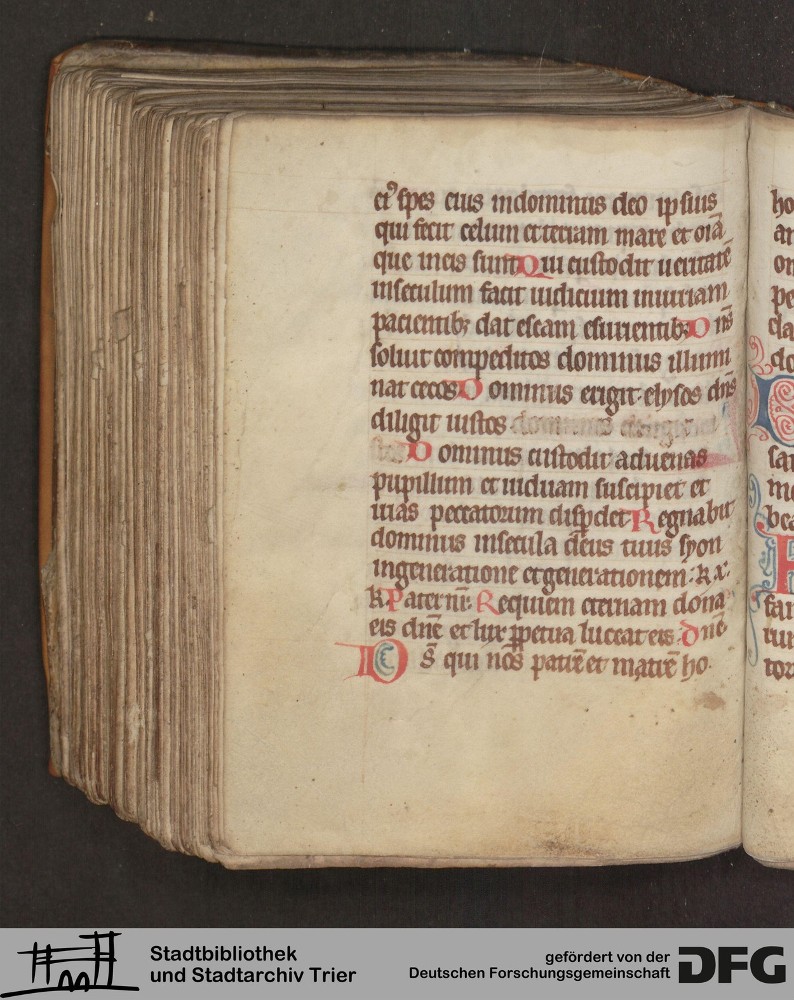 ei⁹ spes eius indominus deo ipsius
qui fecit celum etterram mare et oīa
que ineis sunt Qui custodit ueritatē
inseculum facit iudicium iniuriam
pacientibꝫ dat escam esurientibꝫ D n̄s
soluit compeditos dominus illumi
nat cecos D ominus erigit elysos dn̄s
diligit iustos dominus
D ominus custodit aduenas
pupillum et uiduam suscipiet et
uias peccatorum disꝑdet R egnabit
dominus insecula deus tuus syon
ingeneratione etgenerationem: k x:
k. P ater nr̄. R equiem eternam dona
eis dn̄e et lux ꝑpetua luceat eis. d n̄e
D s̄ qui nos patrē et matrē ho
ho
an
on
pe
da
do
sa
me
bea
san
tur
tor
Stadtbibliothek
und Stadtarchiv Trier
gefördert von der
Deutschen Forschungsgemeinschaft
DFG